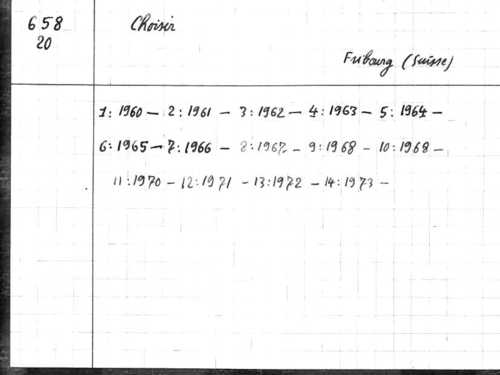 658
20
Choisir
Fribourg (Suisse)
1: 1960 – 2: 1961 – 3: 1962 – 4: 1963 – 5: 1964 –
6: 1965 – 7: 1966 – 8: 1967 – 9: 1968 – 10: 1968 –
11: 1970 – 12: 1971 – 13: 1972 – 14: 1973 –